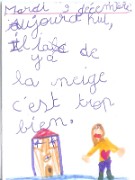 Mardi 2 décembre
Aujourd'hui,
Il y a de
la neige
c'est trop
bien.